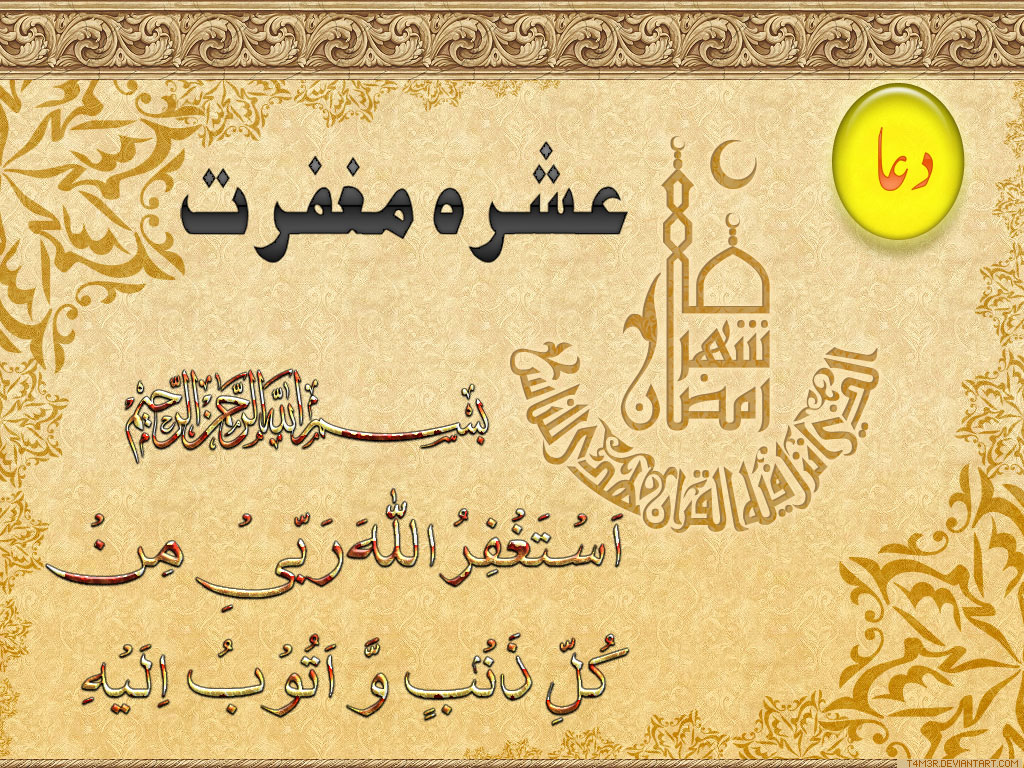 دعا
عشره مغفرت
شهر
رمضان
الذي انزل فيه القرآن هدى للناس
بسم الله الرحمن الرحيم
اَسْتَغْفِرُ اللهَ رَبِّیْ مِنْ
كُلِّ ذَنْبٍ وَّ اَتُوْبُ اِلَيْهِ
T4M3R.DEVIANTART.COM